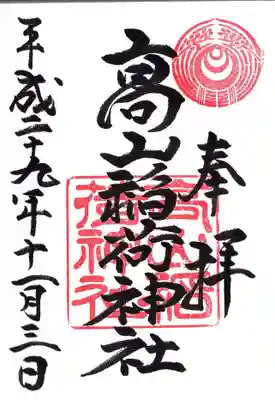 奉拝
高山稲荷神社
平成二十九年十一月三日
高山稲
荷神社